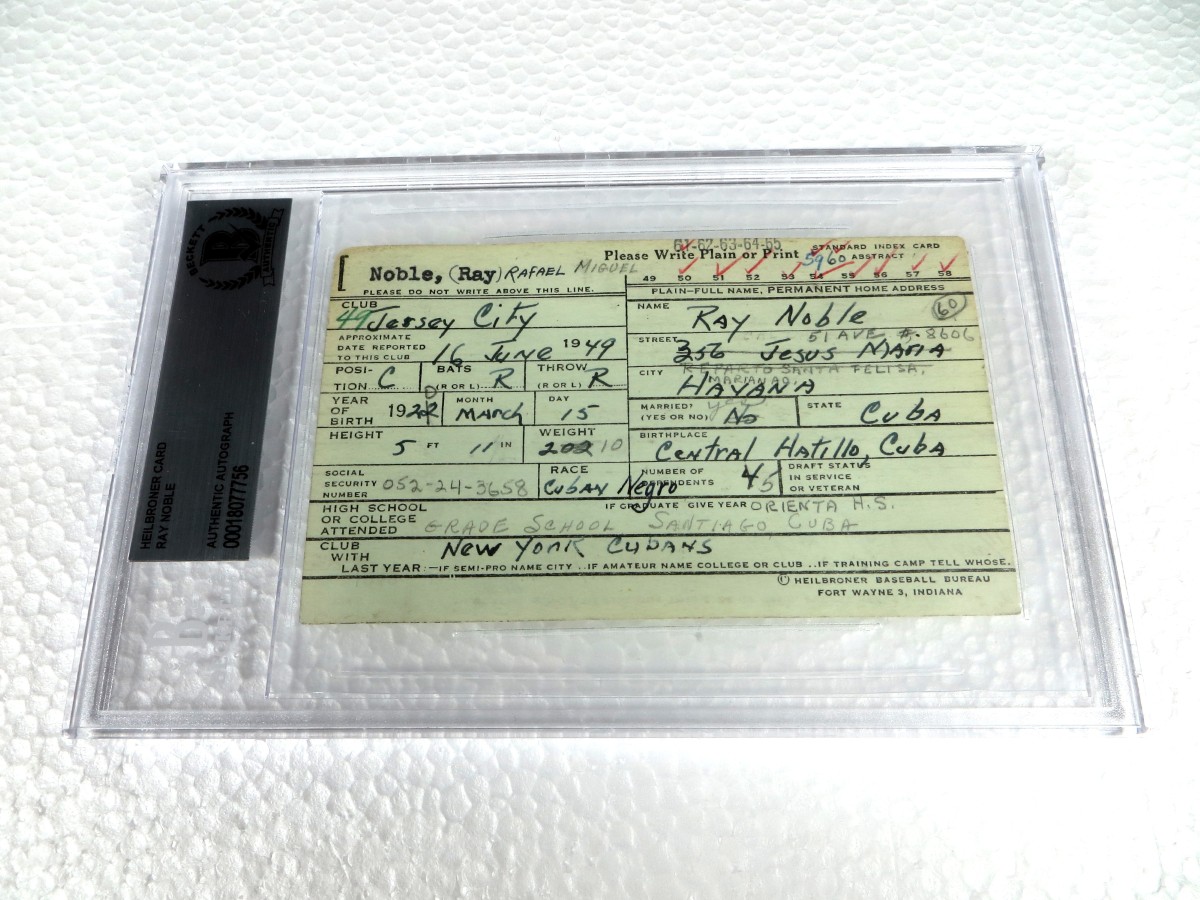 BECKETT
B
AUTHENTIC
HEILBRONER CARD
RAY NOBLE
AUTHENTIC AUTOGRAPH
0001807756
61-62-63-64-65
Please Write Plain or Print
STANDARD INDEX CARD
5960 ABSTRACT
49 50 51 52 53 54 55 56 57 58
Noble, (Ray) RAFAEL MIGUEL
PLEASE DO NOT WRITE ABOVE THIS LINE.
PLAIN-FULL NAME, PERMANENT HOME ADDRESS
CLUB
49 Jersey City
NAME
RAY Noble
60
APPROXIMATE
DATE REPORTED
TO THIS CLUB 16 June 1949
51 AVE #-8606
STREET 256 Jesus MARIA
POSI-
TION C
BATS
(R OR L) R
THROW
(R OR L) R
REPARTO SANTA FELISA,
MARIANAO,
CITY HAVANA
YEAR
OF
BIRTH 192
MONTH
March
DAY
15
MARRIED?
(YES OR NO) yes No
STATE Cuba
HEIGHT
5 FT 11 IN
WEIGHT
202 10
BIRTHPLACE
Central Hatillo, Cuba
SOCIAL
SECURITY
NUMBER 052-24-3658
RACE
Cuban Negro
NUMBER OF
DEPENDENTS 45
DRAFT STATUS
IN SERVICE
OR VETERAN
HIGH SCHOOL
OR COLLEGE
ATTENDED
IF GRADUATE GIVE YEAR ORIENTA H.S.
GRADE SCHOOL SANTIAGO, CUBA
CLUB
WITH
New York Cubans
LAST YEAR:—IF SEMI-PRO NAME CITY ..IF AMATEUR NAME COLLEGE OR CLUB ..IF TRAINING CAMP TELL WHOSE.
© HEILBRONER BASEBALL BUREAU
FORT WAYNE 3, INDIANA